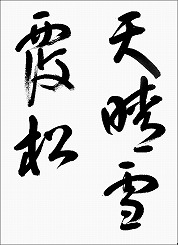 天晴雪
霞松